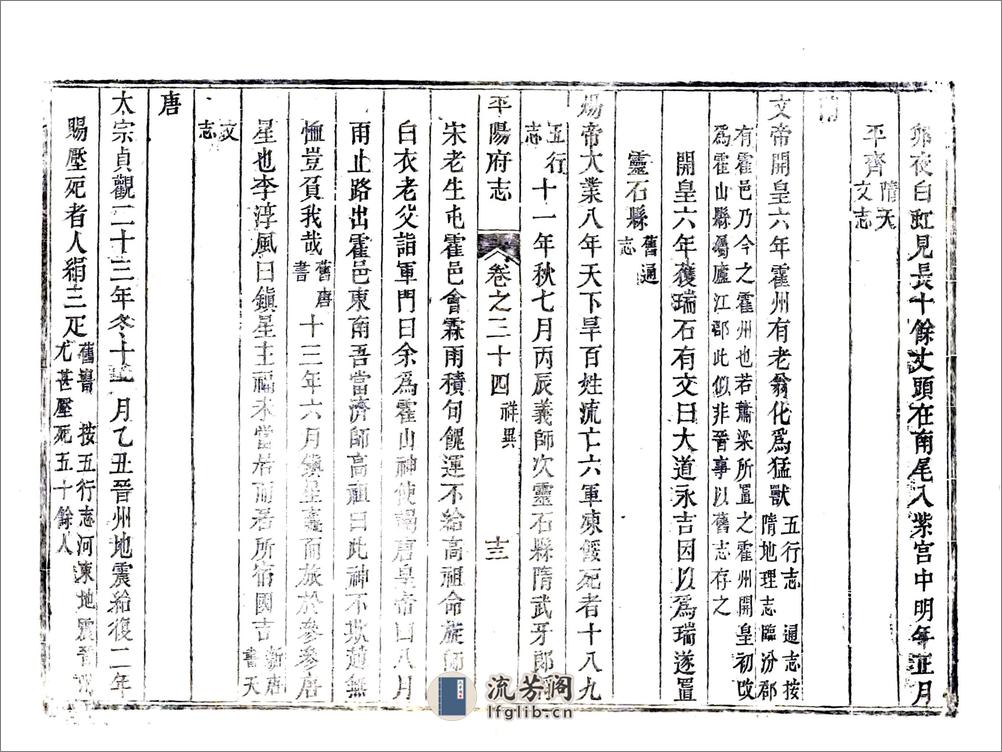 卯夜白虹見長十餘丈頭在南尾入紫宮中明年正月
平齊隋天文志
隋
文帝開皇六年霍州有老翁化爲猛獸五行志 通志按隋地理志臨汾郡
有霍邑乃今之霍州也若蕭梁所置之霍州開皇初改
爲霍山縣屬廬江郡此似非晉事以舊志存之
開皇六年獲瑞石有文曰大道永吉因以爲瑞遂置
靈石縣舊通志
煬帝大業八年天下旱百姓流亡六軍凍餒死者十八九
五行志十一年秋七月丙辰義師次靈石縣隋武牙郎將
平陽府志 卷之三十四 祥異 十三
宋老生屯霍邑會霖雨積旬餽運不給高祖命旋師
白衣老父詣軍門曰余爲霍山神使謁唐皇帝曰八月
雨止路出霍邑東南吾當濟師高祖曰此神不欺趙無
恤豈負我哉舊唐書十三年六月鎮星嬴而旅於參參唐
星也李淳風曰鎮星主福未當居而居所宿國吉新唐書天
文志
唐
太宗貞觀二十三年冬十一月乙丑晉州地震給復二年
賜壓死者人絹三疋舊唐書 按五行志河東地震晉州
尤甚壓死五十餘人
流芳閣
lfglib.cn